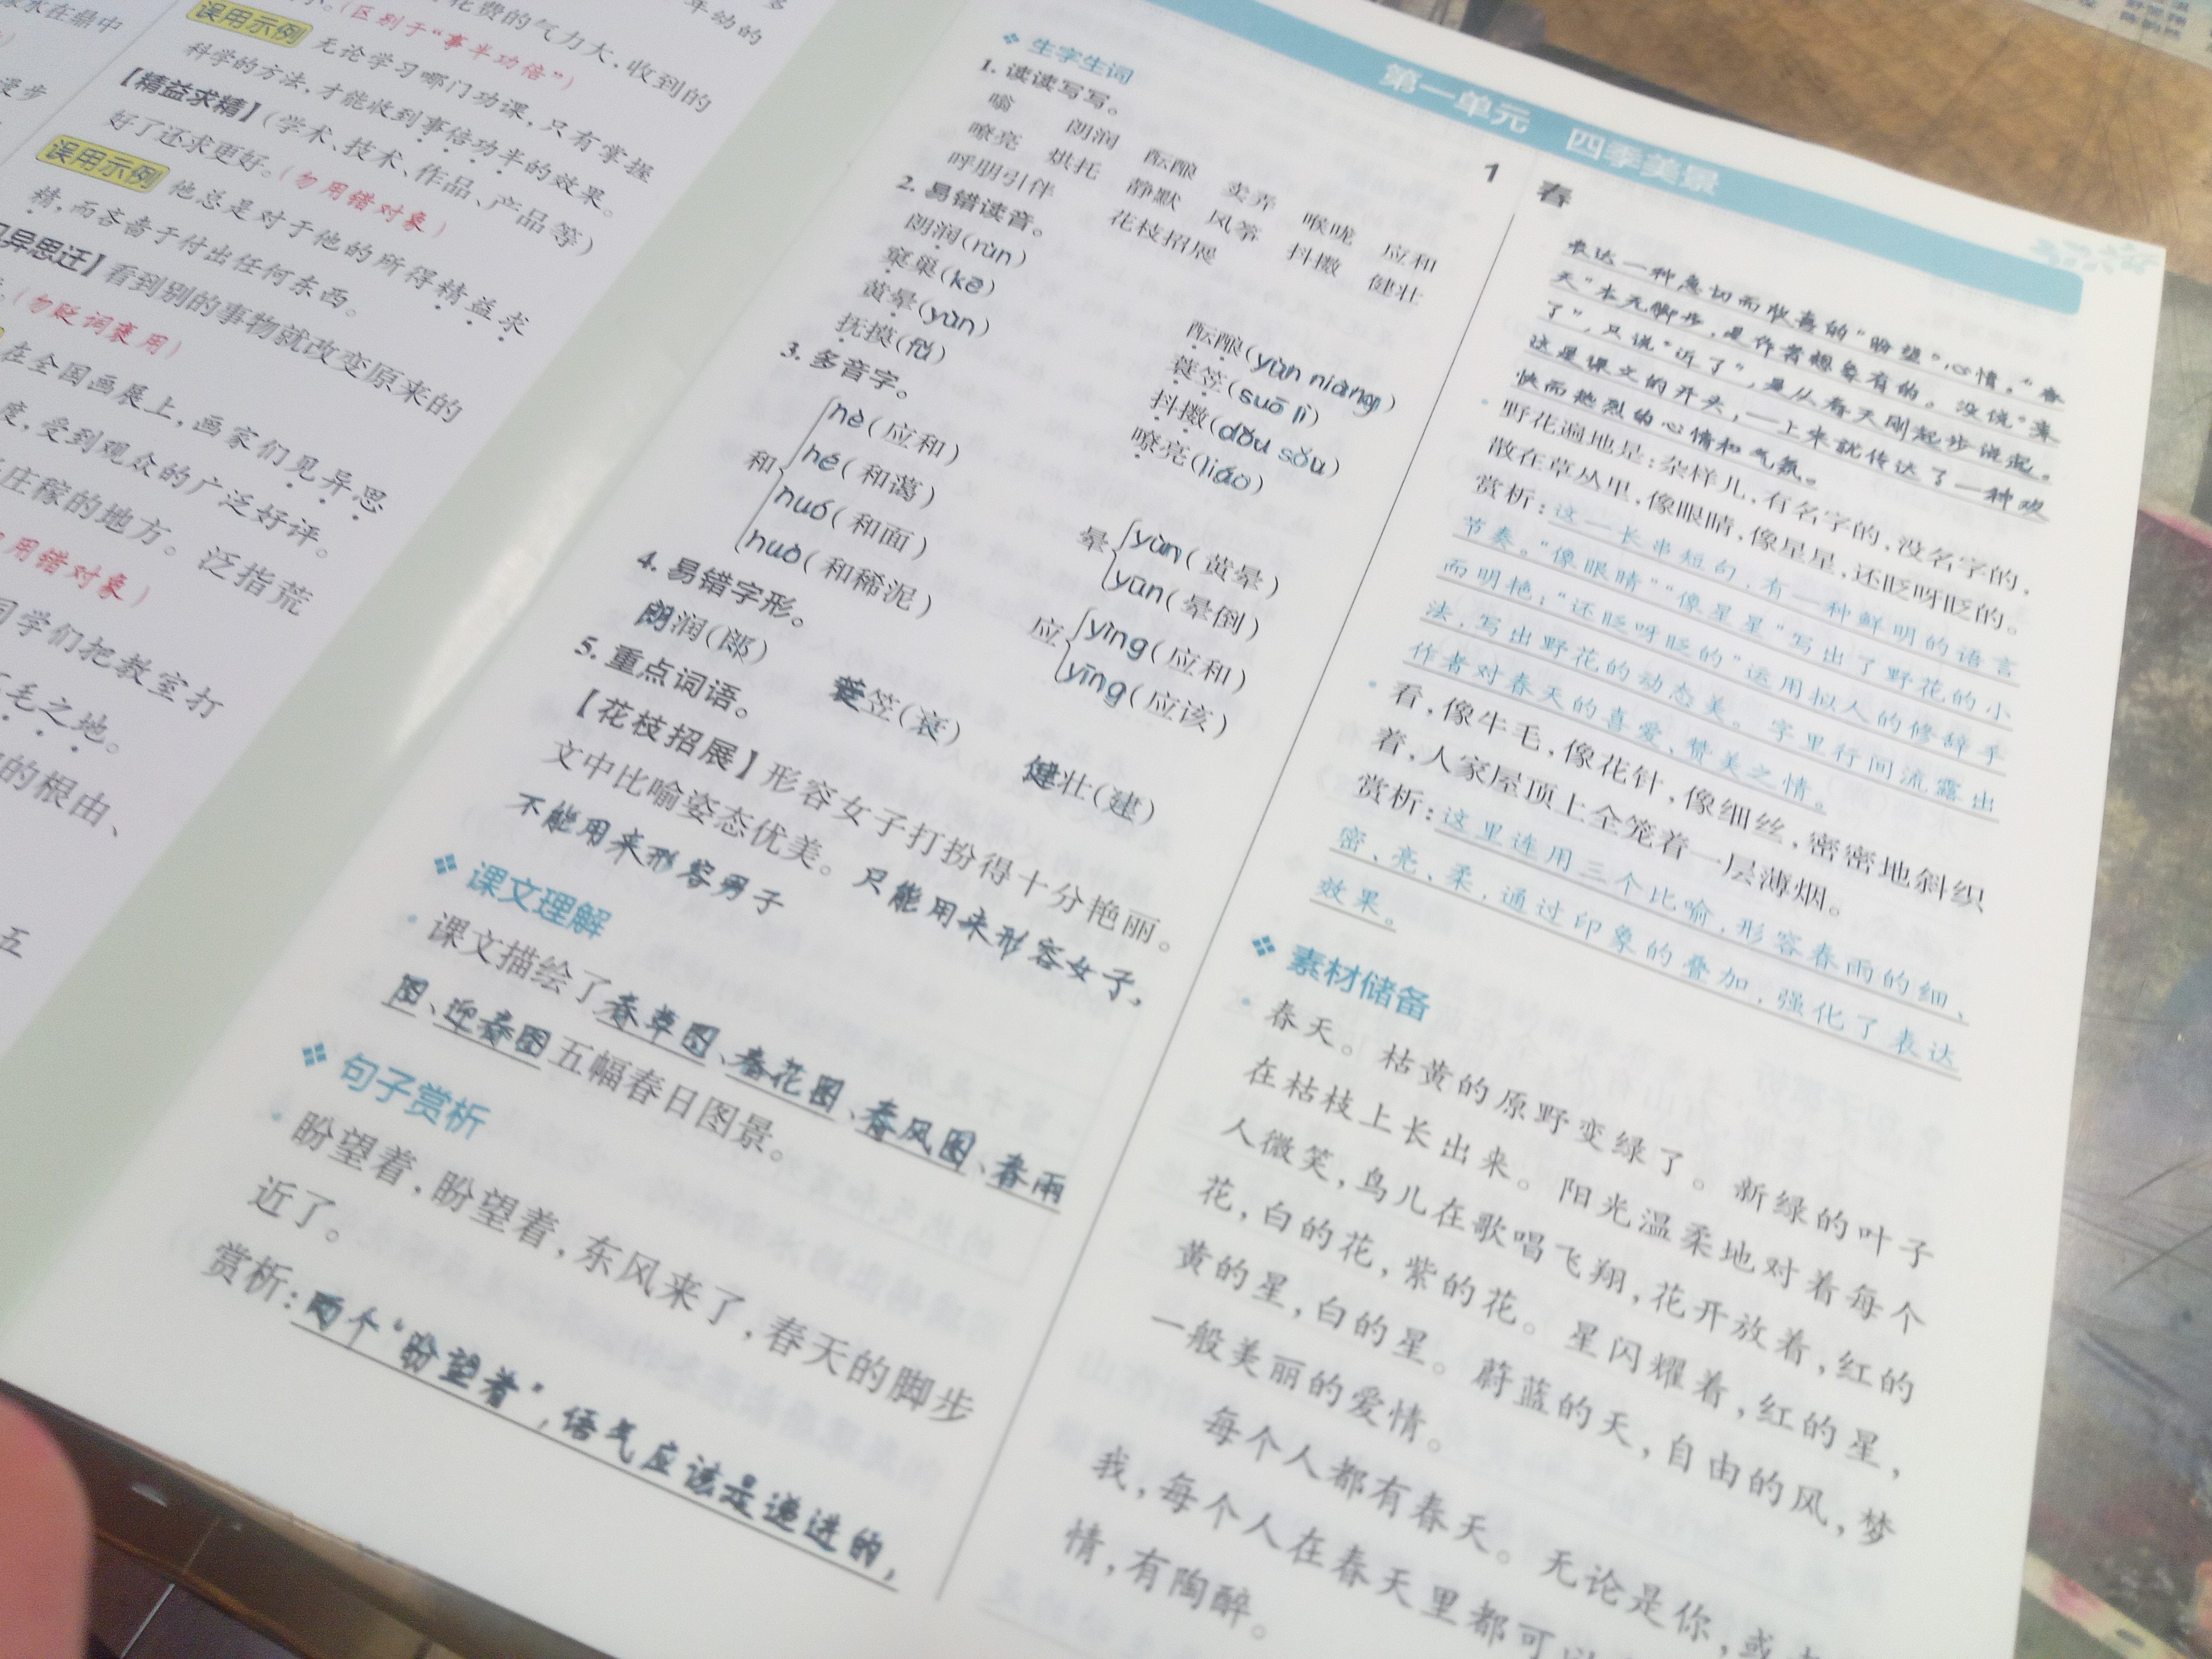 花费的气力大，收到的
（区别于“事半功倍”）
误用示例 无论学习哪门功课，只有掌握
科学的方法，才能收到事倍功半的效果。
【精益求精】（学术、技术、作品、产品等）
好了还求更好。（勿用错对象）
误用示例 他总是对于他的所得精益求
精，而吝啬于付出任何东西。
异思迁】看到别的事物就改变原来的
（勿贬词褒用）
在全国画展上，画家们见异思
度，受到观众的广泛好评。
庄稼的地方。泛指荒
用错对象）
同学们把教室打
毛之地。
的根由、
五
第一单元 四季美景
1 春
生字生词
1. 读读写写。
嗡 朗润 酝酿 卖弄 喉咙 应和
嘹亮 烘托 静默 风筝 抖擞 健壮
呼朋引伴 花枝招展
2. 易错读音。
朗润(rùn) 酝酿(yùn niàng)
窠巢(kē) 蓑笠(suō lì)
黄晕(yùn) 抖擞(dǒu sǒu)
抚摸(fǔ) 嘹亮(liáo)
3. 多音字。
和 hè(应和)
hé(和蔼)
huó(和面)
huò(和稀泥)
晕 yùn(黄晕)
yūn(晕倒)
应 yìng(应和)
yīng(应该)
4. 易错字形。
朗润(郎) 蓑笠(衰) 健壮(建)
5. 重点词语。
【花枝招展】形容女子打扮得十分艳丽。
文中比喻姿态优美。只能用来形容女子，
不能用来形容男子
课文理解
课文描绘了春草图、春花图、春风图、春雨
图、迎春图五幅春日图景。
句子赏析
盼望着，盼望着，东风来了，春天的脚步
近了。
赏析：两个“盼望着”，语气应该是递进的，
表达一种急切而欣喜的“盼望”心情。“春
天”本无脚步，是作者想象有的。没说“来
了”，只说“近了”，是从春天刚起步说起。
这是课文的开头，一上来就传达了一种欢
快而热烈的心情和气氛。
野花遍地是：杂样儿，有名字的，没名字的，
散在草丛里，像眼睛，像星星，还眨呀眨的。
赏析：这一长串短句，有一种鲜明的语言
节奏。“像眼睛”“像星星”写出了野花的小
而明艳；“还眨呀眨的”运用拟人的修辞手
法，写出野花的动态美。字里行间流露出
作者对春天的喜爱、赞美之情。
看，像牛毛，像花针，像细丝，密密地斜织
着，人家屋顶上全笼着一层薄烟。
赏析：这里连用三个比喻，形容春雨的细、
密、亮、柔，通过印象的叠加，强化了表达
效果。
素材储备
春天。枯黄的原野变绿了。新绿的叶子
在枯枝上长出来。阳光温柔地对着每个
人微笑，鸟儿在歌唱飞翔，花开放着，红的
花，白的花，紫的花。星闪耀着，红的星，
黄的星，白的星。蔚蓝的天，自由的风，梦
一般美丽的爱情。
每个人都有春天。无论是你，或
我，每个人在春天里都可
情，有陶醉。